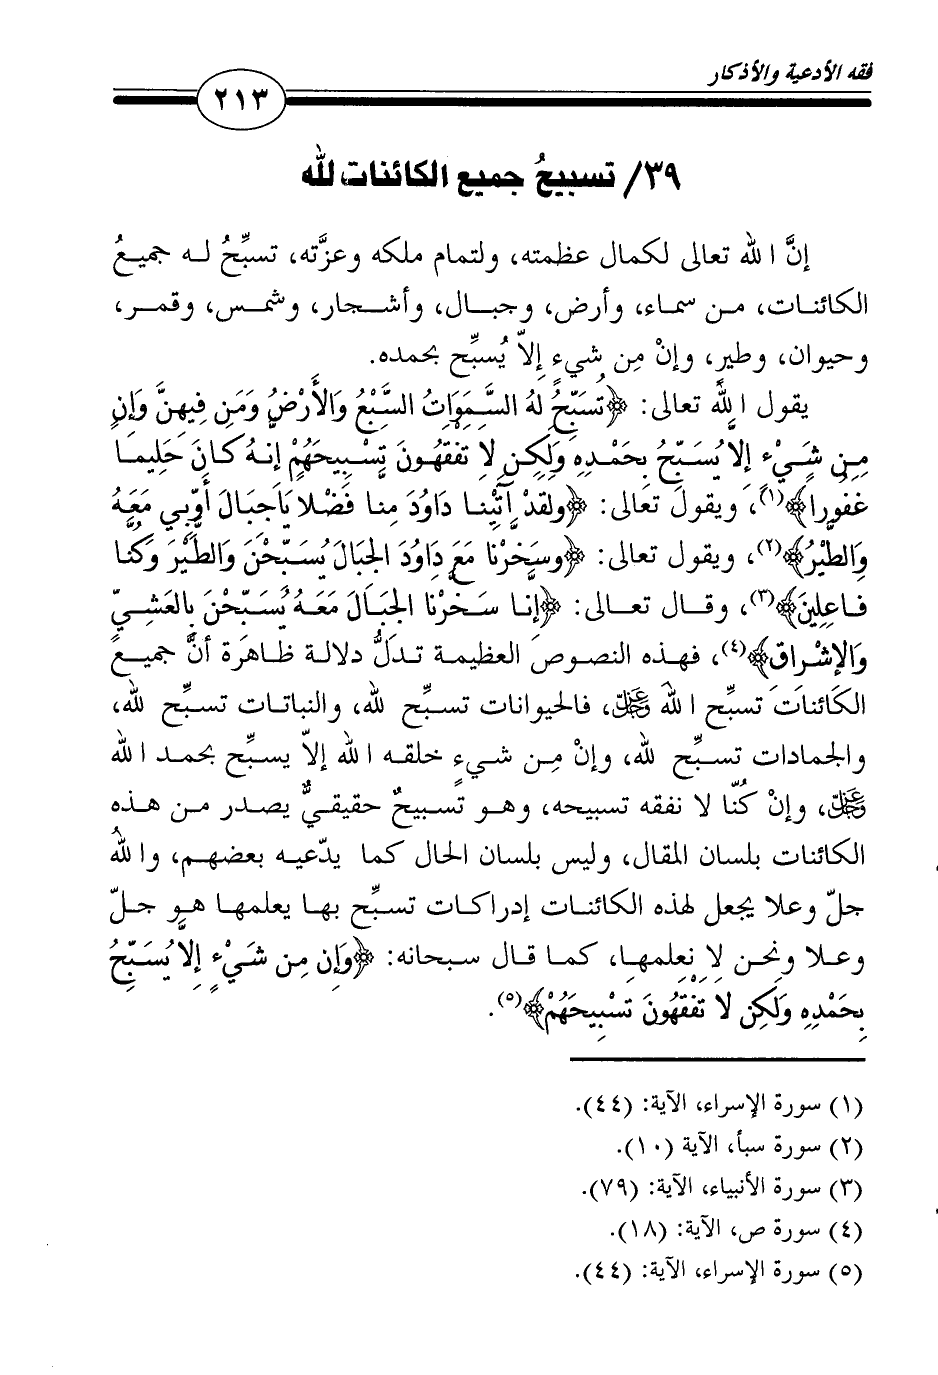 فقه الأدعية والأذكار
٢١٣
٣٩/ تسبيحُ جميع الكائنات لله
إنَّ الله تعالى لكمال عظمته، ولتمام ملكه وعزَّته، تسبِّحُ له جميعُ
الكائنات، من سماء، وأرض، وجبال، وأشجار، وشمس، وقمر،
وحيوان، وطير، وإنْ مِن شيءٍ إلاّ يُسبِّح بحمده.
يقول الله تعالى: ﴿تُسَبِّحُ لَهُ السَّمَوَاتُ السَّبْعُ وَالأَرْضُ وَمَن فِيهِنَّ وَإِن
مِن شَيْءٍ إِلاَّ يُسَبِّحُ بِحَمْدِهِ وَلَكِن لاَ تَفْقَهُونَ تَسْبِيحَهُمْ إِنَّهُ كَانَ حَلِيماً
غَفُوراً﴾(١)، ويقول تعالى: ﴿وَلَقَدْ آتَيْنَا دَاوُدَ مِنَّا فَضْلاً يَا جِبَالُ أَوِّبِي مَعَهُ
وَالطَّيْرَ﴾(٢)، ويقول تعالى: ﴿وَسَخَّرْنَا مَعَ دَاوُدَ الجِبَالَ يُسَبِّحْنَ وَالطَّيْرَ وَكُنَّا
فَاعِلِينَ﴾(٣)، وقال تعالى: ﴿إِنَّا سَخَّرْنَا الجِبَالَ مَعَهُ يُسَبِّحْنَ بِالعَشِيِّ
وَالإِشْرَاقِ﴾(٤)، فهذه النصوص العظيمة تدلُّ دلالة ظاهرة أنَّ جميعَ
الكائنات تسبِّح الله ﷿، فالحيوانات تسبِّح لله، والنباتات تسبِّح لله،
والجمادات تسبِّح لله، وإنْ مِن شيءٍ خلقه الله إلاّ يسبِّح بحمد الله
﷿، وإنْ كُنّا لا نفقه تسبيحه، وهو تسبيحٌ حقيقيٌّ يصدر من هذه
الكائنات بلسان المقال، وليس بلسان الحال كما يدّعيه بعضهم، واللهُ
جلّ وعلا يجعل لهذه الكائنات إدراكات تسبِّح بها يعلمها هو جلّ
وعلا ونحن لا نعلمها، كما قال سبحانه: ﴿وَإِن مِن شَيْءٍ إِلاَّ يُسَبِّحُ
بِحَمْدِهِ وَلَكِن لاَ تَفْقَهُونَ تَسْبِيحَهُمْ﴾(٥).
(١) سورة الإسراء، الآية: (٤٤).
(٢) سورة سبأ، الآية (١٠).
(٣) سورة الأنبياء، الآية: (٧٩).
(٤) سورة ص، الآية: (١٨).
(٥) سورة الإسراء، الآية: (٤٤).